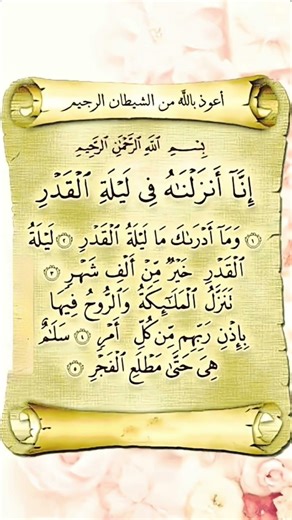 أعوذ بالله من الشيطان الرجيم
بِسْمِ اللَّهِ الرَّحْمَٰنِ الرَّحِيمِ
إِنَّآ أَنزَلْنَٰهُ فِى لَيْلَةِ ٱلْقَدْرِ
١ وَمَآ أَدْرَىٰكَ مَا لَيْلَةُ ٱلْقَدْرِ ٢ لَيْلَةُ
ٱلْقَدْرِ خَيْرٌ مِّنْ أَلْفِ شَهْرٍ ٣
تَنَزَّلُ ٱلْمَلَٰٓئِكَةُ وَٱلرُّوحُ فِيهَا
بِإِذْنِ رَبِّهِم مِّن كُلِّ أَمْرٍ ٤ سَلَٰمٌ
هِىَ حَتَّىٰ مَطْلَعِ ٱلْفَجْرِ ٥